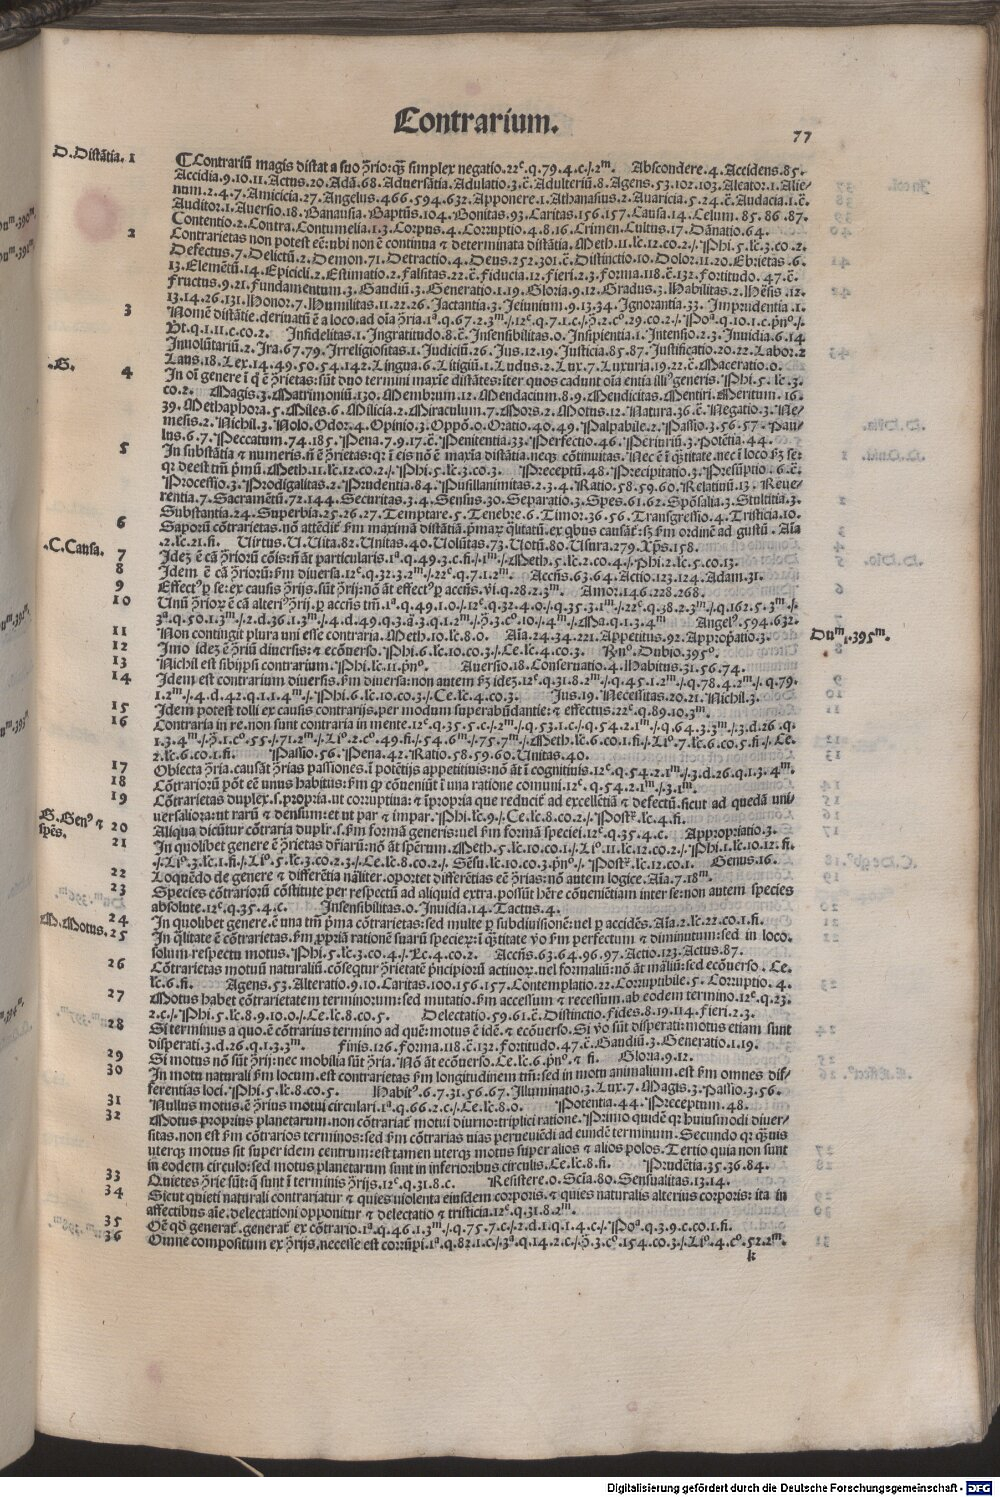 Contrarium.
77
D.Distãtia. 1
¶Contrariũ magis distat a suo ꝯ̃rio: qᷓꝫ simplex negatio.22ᵉ.q.79.4.c./.2ᵐ. Abscondere.4. Accidens.85.
Accidia.9.10.11. Actus.20. Adã.68. Aduersãtia. Adulatio.3.c̃. Adulteriũ.8. Agens.53.102.103. Aleator.1. Alie/
num.2.4.7. Amicicia.27. Angelus.466.594.632. Apponere.1. Athanasius.2. Auaricia.5.24.c̃. Audacia.1.c̃.
Auditor.1. Auersio.18. Banausia. Baptũs.104. Bonitas.93. Caritas.156.157. Causa.14. Celum.85.86.87.
Contentio.2. Contra. Contumelia.1.3. Corpus.4. Corruptio.4.8.16. Crimen. Cultus.17. Dãnatio.64.
2
Contrarietas non potest eẽ: ubi non ẽ continua ⁊ determinata distãtia. Meth.11.lc̃.12.co.2./. Phi.5.lc̃.3.co.2.
Defectus.7. Delictũ.2. Demon.71. Detractio.4. Deus.252.301.c̃. Distinctio.10. Dolor.11.20. Ebrietas.6.
13. Elemẽtũ.14. Epicicli.2. Estimatio.2. Falsitas.22.c̃. Fiducia.12. Fieri.2.3. Forma.118.c̃.132. Fortitudo.47.c̃.
Fructus.9.21. Fundamentum.3. Gaudiũ.3. Generatio.1.19. Gloria.9.12. Gradus.3. Habilitas.2. Hẽsis.12.
13.14.26.131. Honor.7. Humilitas.11.22.26. Jactantia.3. Jeiunium.9.13.34. Ignorantia.33. Imprudentia.1.
3
Nomẽ distãtie. deriuatũ ẽ a loco. ad oĩa ꝯ̃ria.1ᵃ.q.67.2.3ᵐ./.12ᵉ.q.7.1.c./.ꝯ̃.2.cº.29.co.2./. Poᵃ.q.10.1.c.pꝛ̃nº./.
q.1.11.c.co.2. Infidelitas.1. Ingratitudo.8.c̃. Insensibilitas.0. Insipientia.1. Intensio.2.3. Inuidia.6.14
Inuolũtariũ.2. Ira.67.79. Irreligiositas.1. Judiciũ.26. Jus.12.19. Justicia.85.87. Justificatio.20.22. Labor.2
Laus.18. Lex.14.49.50.54.142. Lingua.6. Litigiũ.1. Ludus.2. Lux.7. Luxuria.19.22.c̃. Maceratio.0.
.G. 4
In oĩ genere ĩ q̃ ẽ ꝯ̃rietas: sũt duo termini maxĩe distãtes: iter quos cadunt oĩa entia illiꝰ generis. Phi.5.lc̃.3.
co.2. Magis.3. Matrimoniũ.130. Membrum.12. Mendacium.8.9. Mendicitas. Mentiri. Meritum.16.
39. Methaphora.5. Miles.6. Milicia.2. Miraculum.7. Mors.2. Motus.12. Natura.36.c̃. Negatio.3. Ne/
mesis.2. Nichil.3. Nolo. Odor.4. Opinio.3. Oppõ.0. Oratio.40.49. Palpabile.2. Passio.3.56.57. Pau/
lus.6.7. Peccatum.74.185. Pena.7.9.17.c̃. Penitentia.33. Perfectio.46. Periuriũ.3. Potẽtia.44.
5
In substãtia ⁊ numeris. ñ ẽ ꝯ̃rietas: qꝛ ĩ eis nõ ẽ maxĩa distãtia. neqꝫ cõtinuitas. Nec ẽ ĩ qᷓ̃titate. nec ĩ loco ꝑꝫ se:
qꝛ deest tm̃ pꝛ̃mũ. Meth.11.lc̃.12.co.2./. Phi.5.lc̃.3.co.3. Preceptũ.48. Precipitatio.3. Presũptio.6.c̃.
Processio.3. Prodigalitas.2. Prudentia.84. Pusillanimitas.2.3.4. Ratio.58.59.60. Relatiuũ.13. Reue/
rentia.7. Sacramẽtũ.72.144. Securitas.3.4. Sensus.30. Separatio.3. Spes.61.62. Spõsalia.3. Stultitia.3.
Substantia.24. Superbia.25.26.27. Temptare.5. Tenebre.6. Timor.36.56. Transgressio.4. Tristicia.10.
6
Saporũ cõtrarietas. nõ attẽdit᷑ ẜm maximã distãtiã. pꝛ̃maꝝ q̃litatũ. ex qͥbus causãt᷑: sꝫ ẜm ordinẽ ad gustũ. Aĩa
.2.lc̃.21.fi. Uirtus. U. Uita.82. Unitas.40. Uolũtas.73. Uotũ.80. Usura.279. Xp̃s.158.
.C.Causa. 7
Ideꝫ ẽ cã ꝯ̃rioꝛũ cõis: ñ ãt particularis.1ᵃ.q.49.3.c.fi./.1ᵐ./. Meth.5.lc̃.2.co.4./. Phi.2.lc̃.5.co.13.
8
Idem ẽ cã ꝯ̃rioꝛũ: ẜm diuersa.12ᵉ.q.32.3.2ᵐ./.22ᵉ.q.7.1.2ᵐ. Accñs.63.64. Actio.123.124. Adam.31.
9
Effectꝰ ꝑ se: ex causis ꝯ̃rijs. sũt ꝯ̃rij: nõ ãt effectꝰ ꝑ accñs. vi.q.28.2.3ᵐ. Amor.146.228.268.
10
Unũ ꝯ̃rioꝝ ẽ cã alteriꝰ ꝯ̃rij. ꝑ accñs tm̃.1ᵃ.q.49.1.0./.12ᵉ.q.32.4.0./.q.35.3.1ᵐ./.22ᵉ.q.38.2.3ᵐ./.q.162.5.3ᵐ./.
3ᵃ.q.50.1.3ᵐ./.2.d.36.1.3ᵐ./.4.d.49.q.3.ã.3.q.1.2ᵐ./.ꝯ̃.3.cº.10./.4ᵐ./. Ma.q.1.3.4ᵐ Angelꝰ.594.632.
11
Non contingit plura uni esse contraria. Meth.10.lc̃.8.0. Aĩa.24.34.221. Appetitus.92. Appropꝛ̃atio.3.
Duᵐ.1.395ᵐ.
12
Imo ideꝫ ẽ ꝯ̃riũ diuersis: ⁊ ecõuerso. Phi.6.lc̃.10.co.3./. Ce.lc̃.4.co.3. Rñº. Dubio.395º.
13
Nichil est sibijpsi contrarium. Phi.lc̃.11.pꝛ̃nº. Auersio.18. Conseruatio.4. Habitus.31.56.74.
14
Idem est contrarium diuersis. ẜm diuersa: non autem ẜꝫ ideꝫ.12ᵉ.q.31.8.2ᵐ./.q.45.1.2ᵐ./.q.78.4.2ᵐ./.q.79.
1.2ᵐ./.4.d.42.q.1.1.4ᵐ./. Phi.6.lc̃.10.co.3./. Ce.lc̃.4.co.3. Jus.19. Necessitas.20.21. Nichil.3.
15
Idem potest tolli ex causis contrarijs. per modum superabũdantie: ⁊ effectus.22ᵉ.q.89.10.3ᵐ.
16
Contraria in re. non sunt contraria in mente.12ᵉ.q.35.5.c./.2ᵐ./.q.53.1.c./.q.54.2.1ᵐ./.q.64.3.3ᵐ./.3.d.26.q.
1.3.4ᵐ./.ꝯ̃.1.cº.55./.71.2ᵐ./. Liº.2.cº.49.fi./.54.6ᵐ./.75.7ᵐ./. Meth.lc̃.6.co.1.fi./. Liº.7.lc̃.6.co.5.fi./. Ce.
2.lc̃.6.co.1.fi. Passio.56. Pena.42. Ratio.58.59.60. Unitas.40.
17
Obiecta ꝯ̃ria. causãt ꝯ̃rias passiones. ĩ potẽtijs appetitiuis: nõ ãt ĩ cognitiuis.12ᵉ.q.54.2.1ᵐ./.3.d.26.q.1.3.4ᵐ.
18
Cõtrarioꝛũ põt eẽ unus habitus: ẜm qͦ cõueniũt ĩ una ratione comuni.12ᵉ.q.54.2.1ᵐ./.3.1ᵐ.
19
Cõtrarietas duplex. s. propria. ut corruptiua: ⁊ ĩpropria que reducit᷑ ad excellẽtiã ⁊ defectũ. sicut ad quedã uni/
uersaliora: ut rarũ ⁊ densum: et ut par ⁊ impar. Phi.lc̃.9./. Ce.lc̃.8.co.2./. Postꝝ.lc̃.4.fi.
G.Genꝰ ⁊ spẽs. 20
Aliqua dicũtur cõtraria duplr̃. s. ẜm formã generis: uel ẜm formã speciei.12ᵉ.q.35.4.c. Appropriatio.3.
21
In quolibet genere ẽ ꝯ̃rietas dr̃iarũ: nõ ãt sp̃erum. Meth.5.lc̃.10.co.1./. Liº.11.lc̃.12.co.2./. Phi.1.lc̃.10.12.fi.
./. Liº.3.lc̃.1.fi./. Liº.5.lc̃.3.co.2.3./. Ce.lc̃.8.co.2./. Sẽsu.lc̃.10.co.3.pꝛ̃nº./. Postꝝ.lc̃.12.co.1. Genus.16.
22
Loquẽdo de genere ⁊ differẽtia nãliter. oportet differẽtias eẽ ꝯ̃rias: nõ autem logice. Aĩa.7.18ᵐ.
23
Species cõtrarioꝛũ cõstitute per respectũ ad aliquid extra. possũt hẽre cõueniẽtiam inter se: non autem species
absolute.12ᵉ.q.35.4.c. Insensibilitas.0. Inuidia.14. Tactus.4.
M.Motus. 24
In quolibet genere. ẽ una tm̃ pꝛ̃ma cõtrarietas: sed multe ꝑ subdiuisionẽ: uel ꝑ accidẽs. Aĩa.2.lc̃.22.co.1.fi.
25
In q̃litate ẽ cõtrarietas. ẜm ꝓpꝛiã rationẽ suaꝝ specieꝝ: ĩ qᷓ̃titate ṽo ẜm perfectum ⁊ diminutum: sed in loco.
solum respectu motus. Phi.5.lc̃.3.co.4./. Ec.4.co.2. Accñs.63.64.96.97. Actio.123. Actus.87.
26
Cõtrarietas motuũ naturaliũ. cõseqtur ꝯ̃rietatẽ pꝛ̃ncipioꝛũ actiuoꝝ. uel formaliũ: nõ ãt mãliũ: sed ecõuerso. Ce.
lc̃.6.fi. Agens.53. Alteratio.9.10. Caritas.100.156.157. Contemplatio.22. Corruptibile.5. Corruptio.4.
27
Motus habet cõtrarietatem terminorum: sed mutatio. ẜm accessum ⁊ recessum. ab eodem termino.12ᵉ.q.23.
2.c./. Phi.5.lc̃.8.9.10.0./. Ce.lc̃.8.co.5. Delectatio.59.61.c̃. Distinctio. Fides.8.19.114. Fieri.2.3.
28
Si terminus a quo. ẽ cõtrarius termino ad quẽ: motus ẽ idẽ. ⁊ ecõuerso. Si ṽo sũt disperati: motus etiam sunt
disperati.3.d.26.q.1.3.3ᵐ. Finis.126. Forma.118.c̃.132. Fortitudo.47.c̃. Gaudiũ.3. Generatio.1.19.
29
Si motus nõ sũt ꝯ̃rij: nec mobilia sũt ꝯ̃ria. Nõ ãt ecõuerso. Ce.lc̃.6.pꝛ̃nº. ⁊ fi. Gloria.9.12.
30
In motu naturali ẜm locum. est contrarietas ẜm longitudinem tm̃: sed in motu animalium. est ẜm omnes dif/
ferentias loci. Phi.5.lc̃.8.co.5. Habitꝰ.6.7.31.56.67. Illuminatio.3. Lux.7. Magis.3. Passio.3.56.
31
Nullus motus. ẽ ꝯ̃rius motui circulari.1ᵃ.q.66.2.c./. Ce.lc̃.8.0. Potentia.44. Preceptum.48.
32
Motus proprius planetarum. non cõtrariat᷑ motui diurno: triplici ratione. Primo quidẽ qꝛ huiusmodi diuer/
sitas. non est ẜm cõtrarios terminos: sed ẜm cõtrarias uias perueniẽdi ad eundẽ terminum. Secundo qꝛ qᷓ̃uis
uterqꝫ motus sit super idem centrum: est tamen uterqꝫ motus super alios ⁊ alios polos. Tertio quia non sunt
in eodem circulo: sed motus planetarum sunt in inferioribus circulis. Ce.lc̃.8.fi. Prudẽtia.35.36.84.
33
Quietes ꝯ̃rie sũt: q̃ sunt ĩ terminis ꝯ̃rijs.12ᵉ.q.31.8.c. Resistere.0. Scĩa.80. Sensualitas.13.14.
34
Sicut quieti naturali contrariatur ⁊ quies uiolenta eiusdem corporis. ⁊ quies naturalis alterius corporis: ita in
affectibus aĩe. delectationi opponitur ⁊ delectatio ⁊ tristicia.12ᵉ.q.31.8.2ᵐ.
35
Oẽ qd̃ generat᷑. generat᷑ ex cõtrario.1ᵃ.q.46.1.3ᵐ./.q.75.7.c./.2.d.1.q.1.4.c./. Poᵃ.q.3.9.c.co.1.fi.
36
Omne compositum ex ꝯ̃rijs. necesse est corrũpi.1ᵃ.q.82.1.c./.3ᵃ.q.14.2.c./.ꝯ̃.3.cº.154.co.3./. Liº.4.cº.52.2ᵐ.
k
Digitalisierung gefördert durch die Deutsche Forschungsgemeinschaft - DFG